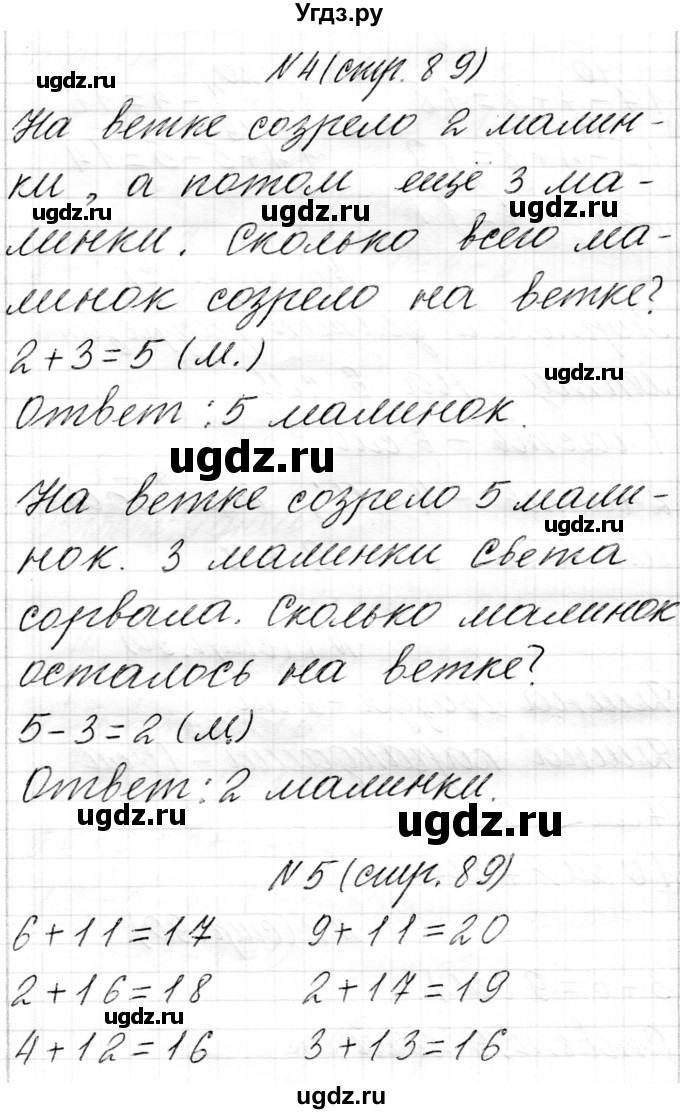 Угдз.ру
N4(стр. 89)
ugdz.ru
На ветке созрело 2 малин-
ки, а потом ещё 3 ма-
ugdz.ru ugdz.ru ugdz.ru
линки. Сколько всего ма-
линок созрело на ветке?
2+3=5 (м.)
ugdz.ru
Ответ: 5 малинок.
ugdz.ru
На ветке созрело 5 мали-
ugdz.ru
нок. 3 малинки Света
сорвала. Сколько малинок
осталось на ветке?
5-3=2 (м.)
Ответ: 2 малинки.
ugdz.ru ugdz.ru
N5(стр. 89)
6+11=17 9+11=20
2+16=18 2+17=19
ugdz.ru
4+12=16 3+13=16
ugdz.ru